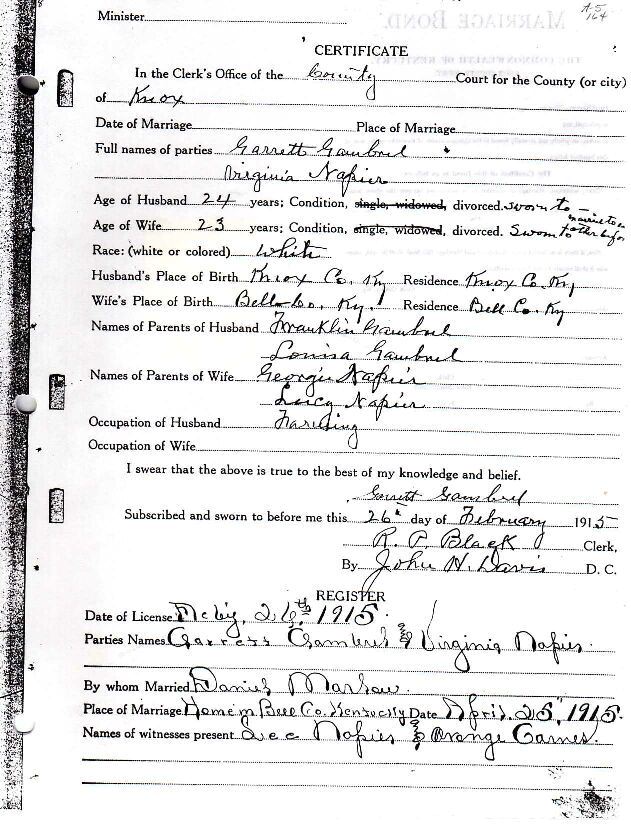 A-5
164
Minister
CERTIFICATE
In the Clerk's Office of the County Court for the County (or city)
of Knox
Date of Marriage Place of Marriage
Full names of parties Garrett Gambrel
Virginia Napier
Age of Husband 24 years; Condition, single, widowed, divorced. Sworn to -
Age of Wife 23 years; Condition, single, widowed, divorced. Sworn to
Race: (white or colored) White
Husband's Place of Birth Knox Co. Ky Residence Knox Co. Ky
Wife's Place of Birth Bell Co. Ky. Residence Bell Co. Ky
Names of Parents of Husband Franklin Gambrel
Louisa Gambrel
Names of Parents of Wife Georgie Napier
Lucy Napier
Occupation of Husband Farming
Occupation of Wife
I swear that the above is true to the best of my knowledge and belief.
Garrett Gambrel
Subscribed and sworn to before me this 26th day of February 1915
R. P. Black Clerk,
By John H. Davis D. C.
REGISTER
Date of License Feby, 26th 1915.
Parties Names Garrett Gambrel & Virginia Napier.
By whom Married Daniel
Place of Marriage Home in Bell Co. Kentucky Date April. 25, 1915.
Names of witnesses present Lee Napier & Orange Carnes.